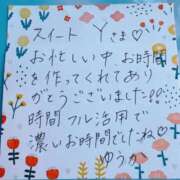 スイート Yさま♡
お忙しい中 お時間
を作ってくれてあり
がとうございました!!
時間フル活用で
濃いお時間でしたね♡
ゆうか